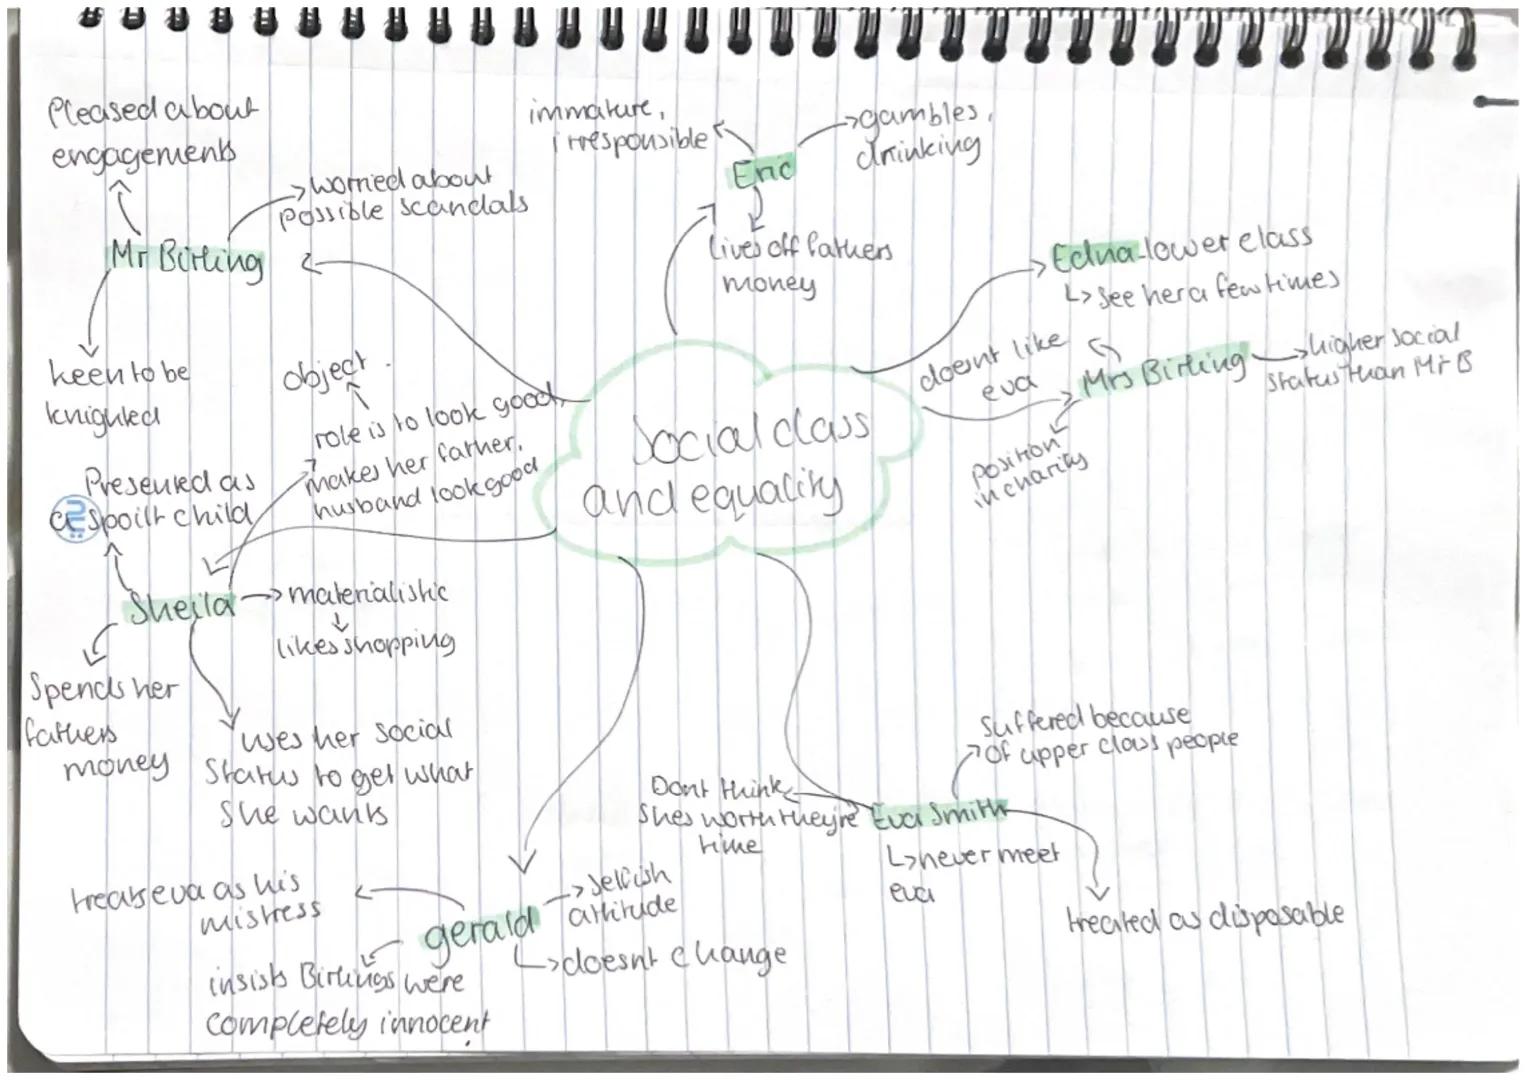 Pleased about
engagements
Mr Birling
worried about
possible scandals
keen to be
knighted
immature,
irresponsible
Eric
gambles,
drinking
lives off fathers
money
Edna - lower class
see her a few times
doesnt like
eva
Mrs Birling
higher social
status than Mr B
position
in charity
Social class
and equality
object
role is to look good,
makes her father,
husband look good
Presented as
a spoilt child
Sheila
materialistic
likes shopping
Spends her
fathers
money
uses her social
status to get what
she wants
gerald
treats eva as his
mistress
selfish
attitude
doesnt change
insists Birlings were
completely innocent
Eva Smith
Suffered because
of upper class people
Dont think
shes worth they're
time
never meet
eva
treated as disposable